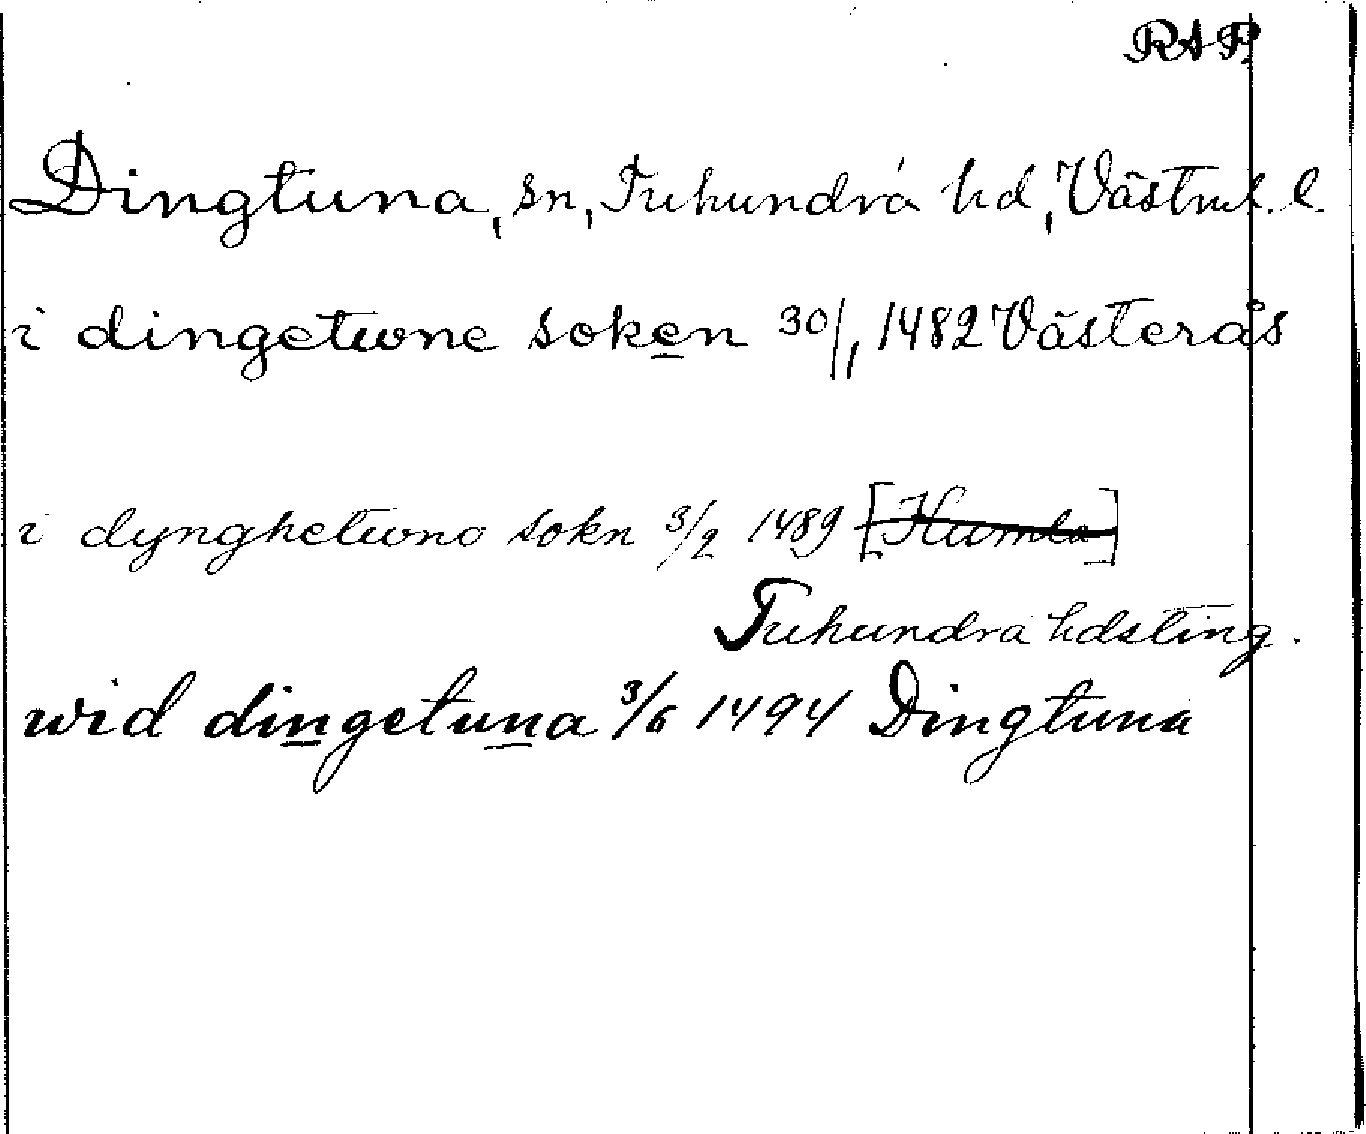 RAP.
Dingtuna, sn, Tuhundra hd, Västml. l.
i dingetwne soken 30/1 1482 Västerås
i dynghetwna sokn 3/2 1489 [Humla]
Tuhundra hdsting.
wid dingetuna 3/6 1494 Dingtuna